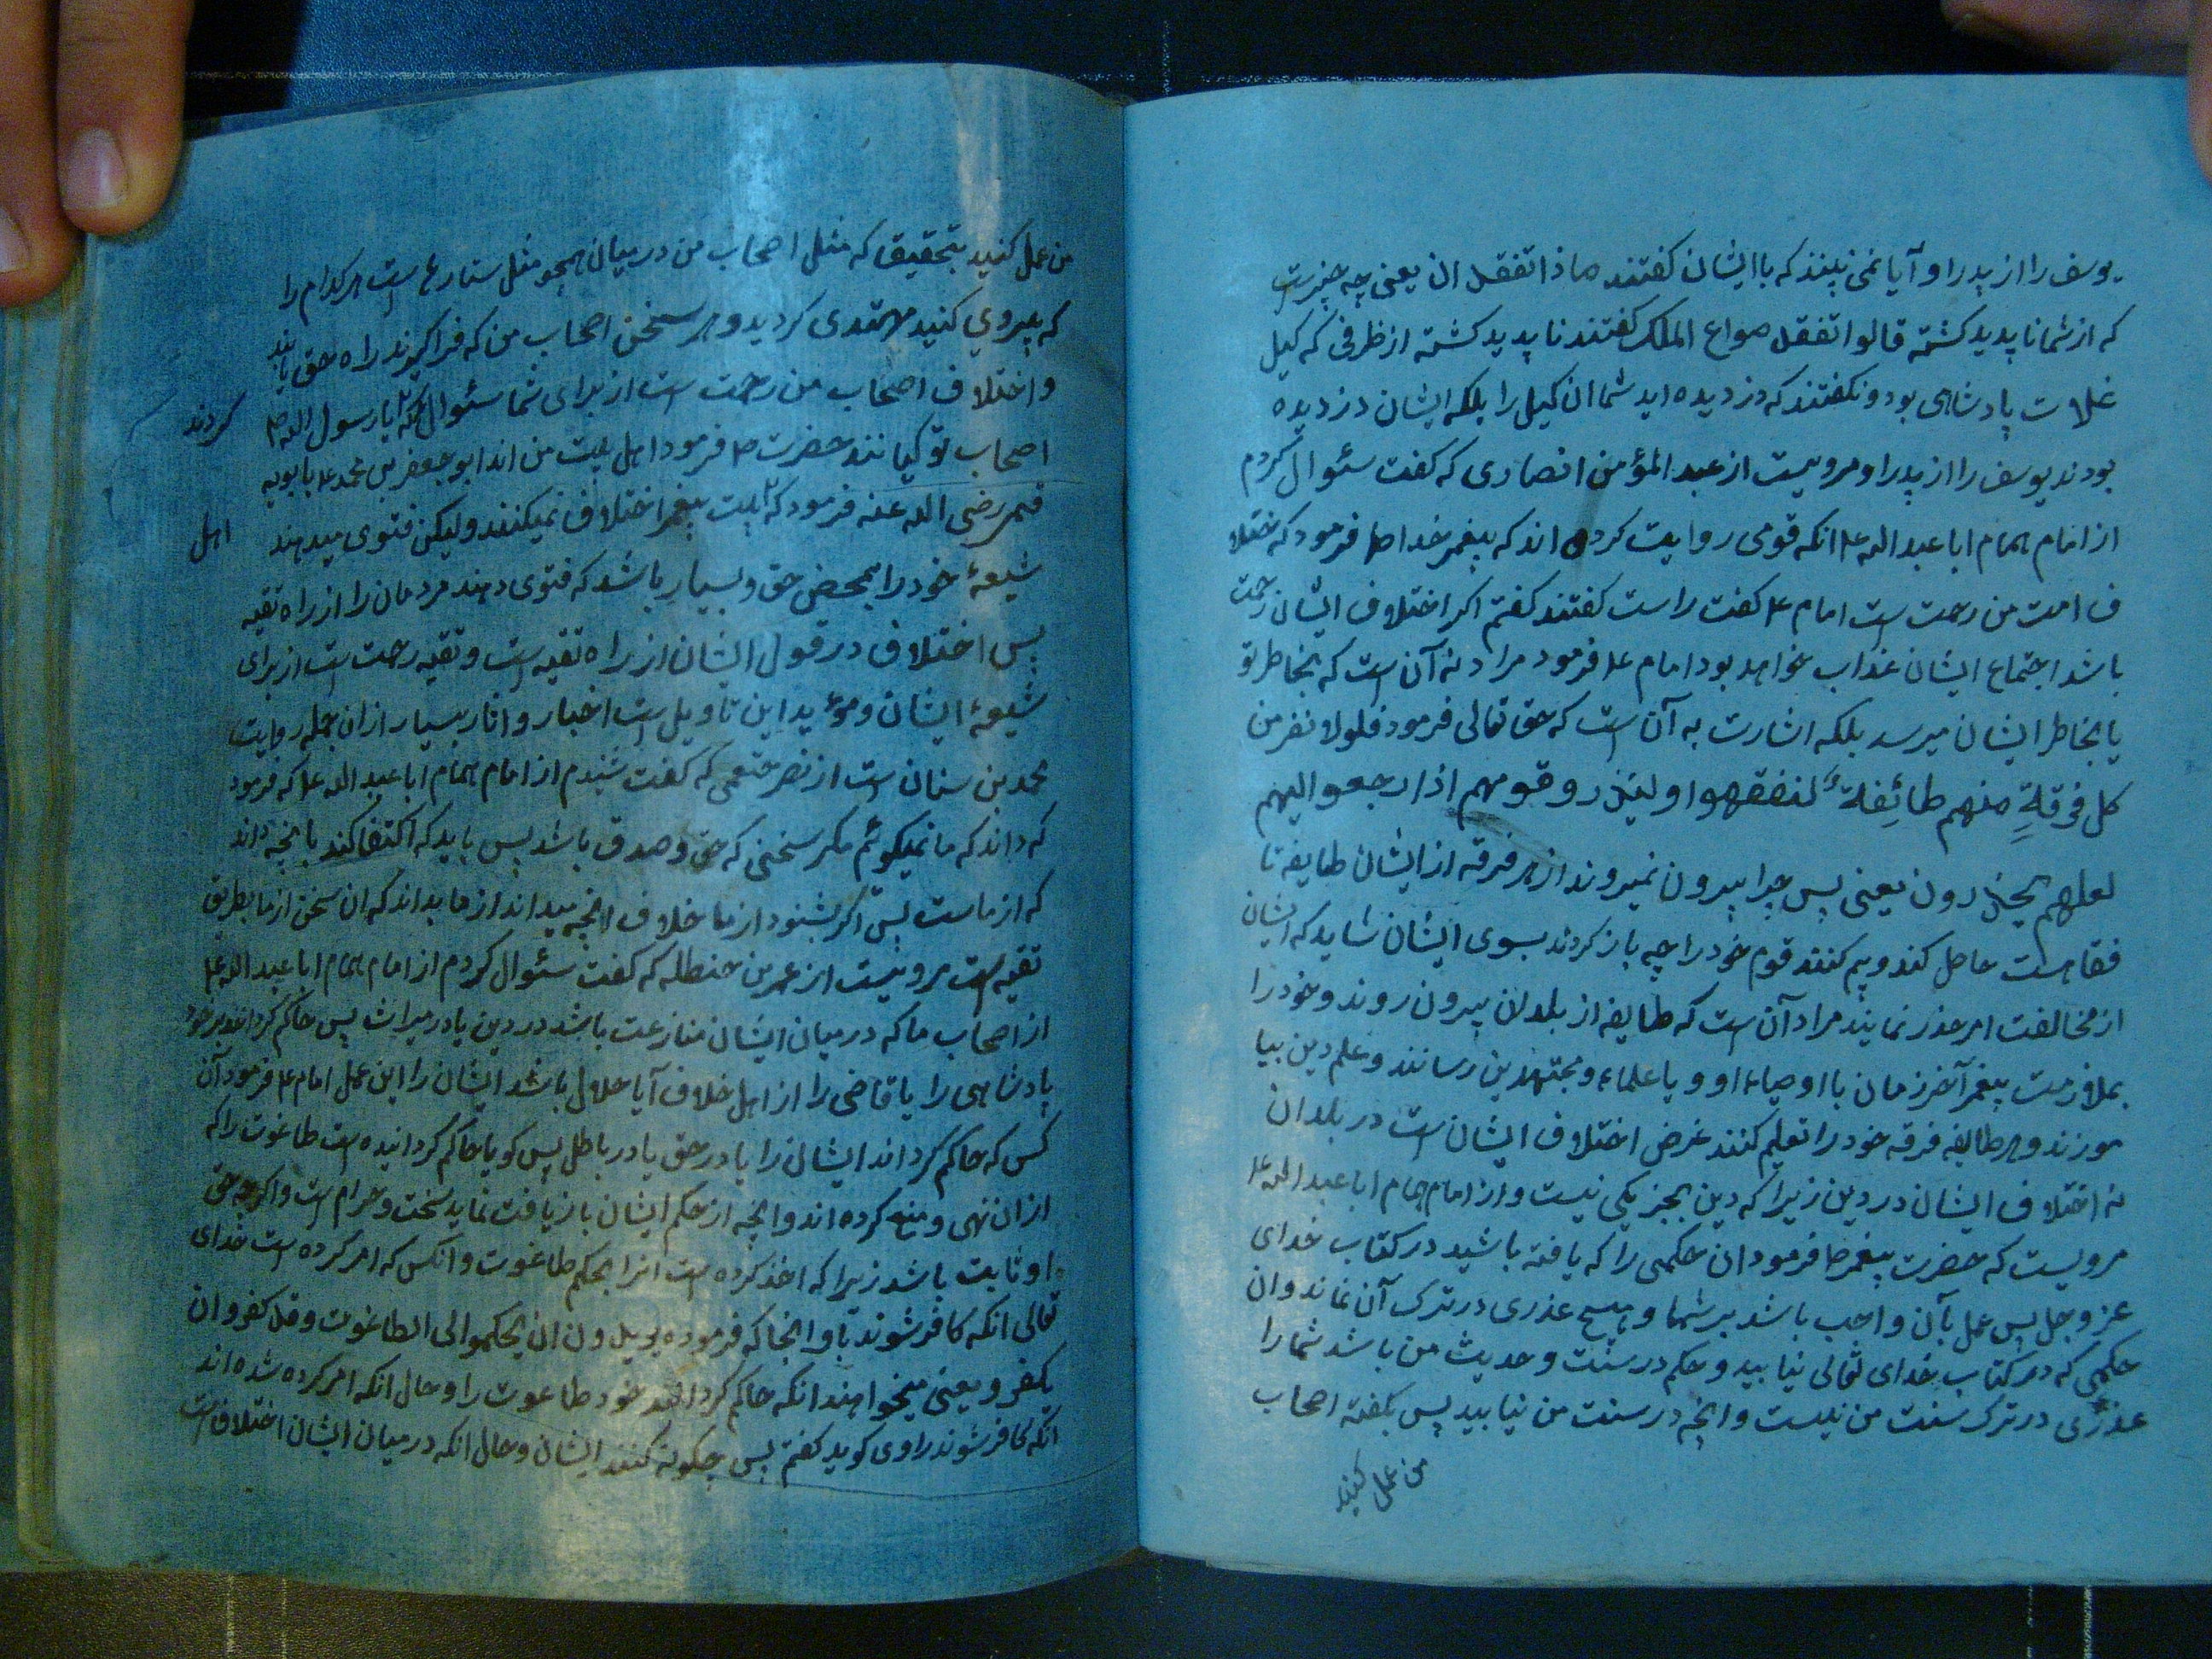 یوسف را از پدر او آیا نمی بینند که با ایشان کفتند ماذا تفقدون یعنی چه چیزست
که از شما ناپدید کشته قالوا تفقد صواع الملک کفتند ناپدید کشته از ظرفی که کیل
غلات پادشاهی بود و نکفتند که دزدیده اید شما ان کیل را بلکه ایشان دزدیده
بودند یوسف را از پدر او مرویست از عبد المؤمن انصاری که کفت سئوال کردم
از امام همام ابا عبد الله ع انکه قومی روایت کرده اند که پیغمبر خدا ص فرمود که اختلا
ف امت من رحمت است امام ع کفت راست کفتند کفتم اکر اختلاف ایشان رحمت
باشد اجتماع ایشان عذاب خواهد بود امام ع فرمود مراد نه آن است که بخاطر تو
یا بخاطر ایشان میرسد بلکه اشارت به آن است که حق تعالی فرمود فلولا نفر من
کل فرقةٍ منهم طائِفة لیتفقهوا و لینذروا قومهم اذا رجعوا الیهم
لعلهم یحذرون یعنی پس چرا بیرون نمیروند از هر فرقه از ایشان طایفه تا
فقاهت حاصل کند و بیم کنند قوم خود را چه باز کردند بسوی ایشان شاید که ایشان
از مخالفت امر حذر نمایند مراد آن است که طایفه از بلدان بیرون روند و خود را
بملازمت پیغمبر آخر زمان با اوصیاء او و یا علماء و مجتهدین رسانند و علم دین بیا
موزند و هر طایفه فرقه خود را تعلیم کنند غرض اختلاف ایشان است در بلدان
نه اختلاف ایشان در دین زیرا که دین بجز یکی نیست و از امام همام ابا عبد الله ع
مرویست که حضرت پیغمبر ص فرمود ان حکمی را که یافته باشید در کتاب خدای
عز و جل پس عمل بآن واجب باشد بر شما و هیچ عذری در ترک آن نماند و ان
حکمی که در کتاب خدای تعالی نیابید و حکم در سنت و حدیث من باشد شما را
عذری در ترک سنت من نیست و انچه در سنت من نیابید پس بکفته اصحاب
من عمل کنید
من عمل کنید بتحقیقا که مثل اصحاب من در میان همچو مثل ستارع است هر کدام را
که پیروی کنید مهتدی کردید و هر سخن اصحاب من که فرا کیرند راه حق یابند
و اختلاف اصحاب من رحمت است از برای شما سئوال کردند که یا رسول الله ص
اصحاب تو کیانند حضرت ص فرمود اهل بیت من اند ابو جعفر بن محمد بابویه
قمی رضی الله عنه فرمود که اهل بیت پیغمبر اختلاف نمیکنند و لیکن فتوی میدهند
شیعهٔ خود را بمحض حق و بسیار باشد که فتوی دهند مردمان را از راه تقیه
پس اختلاف در قول ایشان از راه تقیه است و تقیه رحمت است از برای
شیعهٔ ایشان و مؤید این تاویل است اخبار و اثار بسیار از ان جمله روایت
محمد بن سنان است از نصر خثعمی که کفت شنیدم از امام همام ابا عبد الله ع که فرمود
که داند که ما نمیکوئم مکر سخنی که حق و صدق باشد پس باید که اکتفا کند بانچه داند
که از ماست پس اکر بشنود از ما خلاف انچه میداند از ما بداند که ان سخن از ما بطریق
تقیه است مرویست از عمر بن حنظله که کفت سئوال کردم از امام همام ابا عبد الله ع
از اصحاب ما که در میان ایشان منازعت باشد در دین یا در میراث پس حاکم کردانند بر خود
پادشاهی را یا قاضی را از اهل خلاف آیا حلال باشد ایشان را این عمل امام ع فرمود آن
کس که حاکم کرداند ایشان را یا در حق یا در باطل پس کویا حاکم کردانیده است طاغوت را که
از ان نهی و منع کرده اند و انچه از حکم ایشان باز یافت نماید سخت و حرام است و اکرچه حق
او ثابت باشد زیرا که اخذ کرده است انرا بحکم طاغوت و انکس که امر کرده است خدای
تعالی انکه کافر شوند باو انجا که فرموده یریدون ان یحکموا الی الطاغوت و قد کفروا ان
یکفرو یعنی میخواهند انکه حاکم کردانند خود طاغوت را و حال انکه امر کرده شده اند
انکه کافر شوند راوی کوید کفتم پس چکونه کنند ایشان و حال انکه در میان ایشان اختلاف است
کردند
اهل